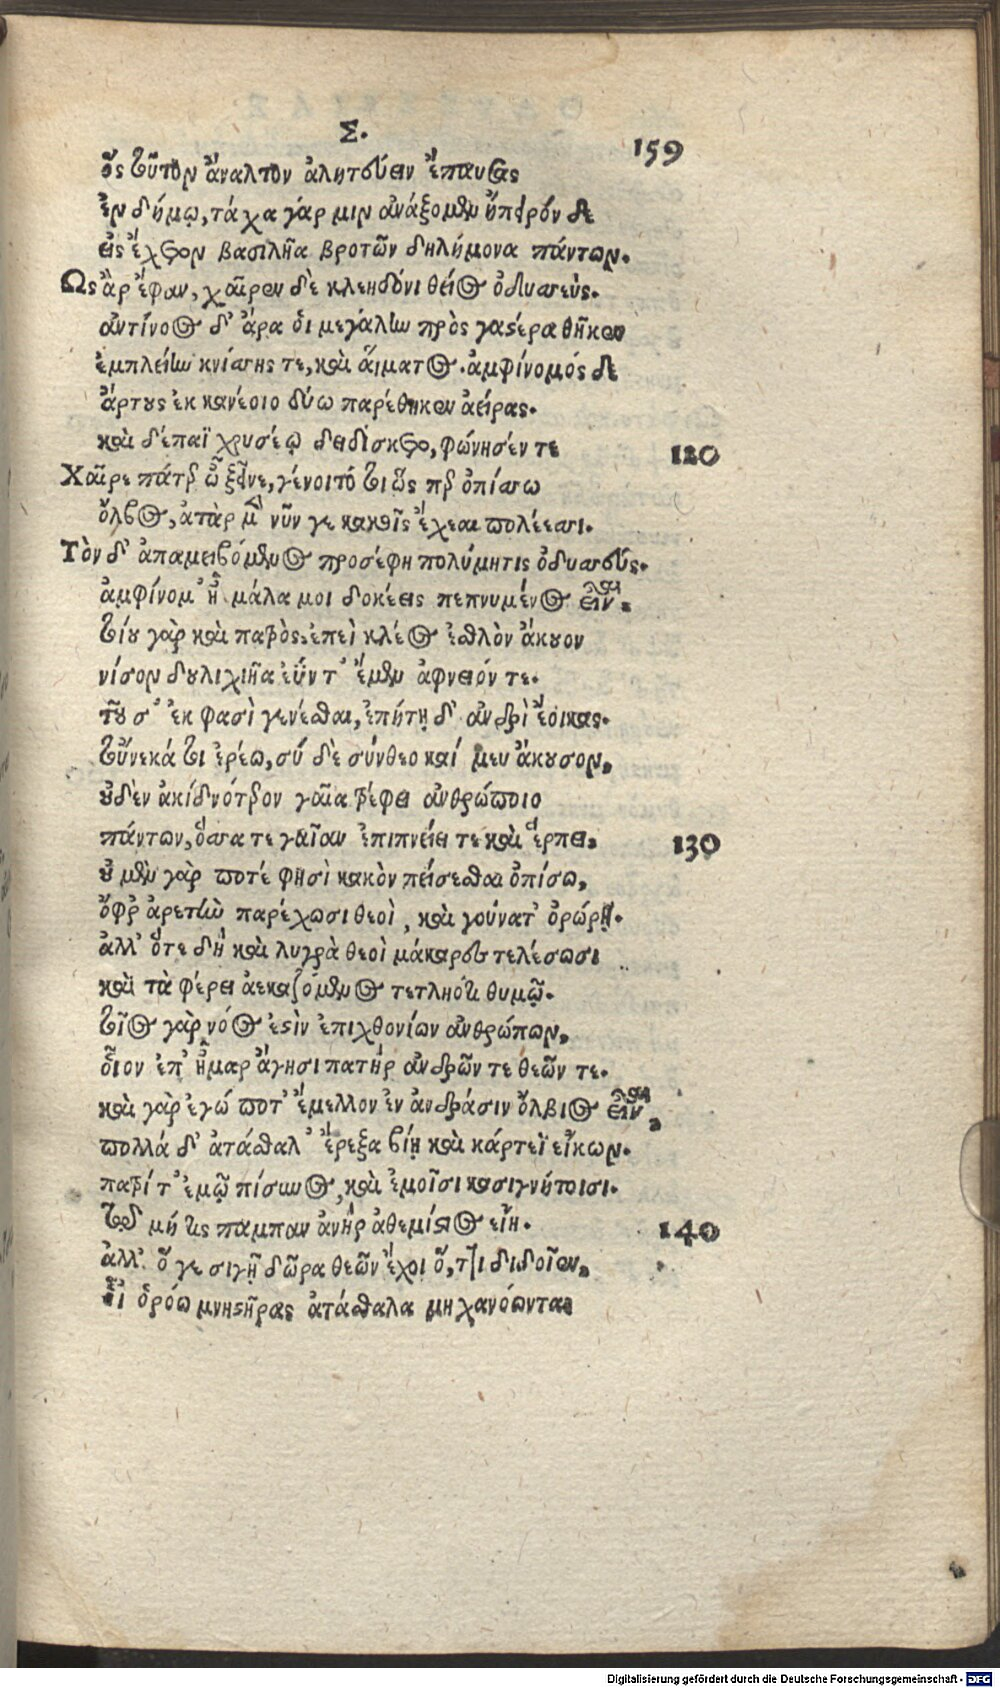 Σ.
159
ὃς τοῦτον ἄναλτον ἀλητεύειν ἔπαυσας
ἐν δήμῳ, τάχα γάρ μιν ἀνάξομεν ἤπειρόν δε
εἰς ἔχετον βασιλῆα βροτῶν δηλήμονα πάντων.
Ως ἂρ ἔφαν, χαῖρεν δὲ κλεηδόνι θεῖος ὀδυσσεὺς.
ἀντίνοος δ' ἄρα ὁι μεγάλην πρὸς γαστέρα θῆκεν
ἐμπλείην κνίσσης τε, καὶ ἅιματος. ἀμφίνομός δε
ἄρτους ἐκ κανέοιο δύω παρέθηκεν ἀείρας.
καὶ δέπαϊ χρυσέῳ δεδίσκετο, φώνησέν τε
120
Χαῖρε πάτερ ὦ ξεῖνε, γένοιτό τοι ὥς περ ὀπίσσω
ὄλβος, ἀτὰρ μὲν νῦν γε κακοῖς ἔχεαι πολέεσσι.
Τὸν δ' ἀπαμειβόμενος προσέφη πολύμητις ὀδυσσεύς.
ἀμφίνομ' ἦ μάλα μοι δοκέεις πεπνυμένος εἶναι,
τοίου γὰρ καὶ πατρὸς. ἐπεὶ κλέος ἐσθλὸν ἄκουον
νίσον δουλιχιῆα ἐΰν τ' ἔμεν ἀφνειόν τε.
τοῦ σ' ἐκ φασὶ γενέσθαι, ἐπήτῃ δ' ἀνδρὶ ἔοικας.
τοὔνεκά τοι ἐρέω, σύ δὲ σύνθεο καί μευ ἄκουσον,
οὐδὲν ἀκιδνότερον γαῖα τρέφει ἀνθρώποιο
πάντων, ὅσσα τε γαῖαν ἐπιπνείει τε καὶ ἕρπει,
130
οὐ μὲν γάρ ποτέ φησὶ κακὸν πείσεσθαι ὀπίσω,
ὄφρ' ἀρετὴν παρέχωσι θεοὶ, καὶ γούνατ' ὀρώρῃ.
ἀλλ' ὅτε δὴ καὶ λυγρὰ θεοὶ μάκαρες τελέσωσι
καὶ τὰ φέρει ἀεκαζόμενος τετληότι θυμῷ.
τοῖος γὰρ νόος ἐστὶν ἐπιχθονίων ἀνθρώπων,
οἷον ἐπ' ἦμαρ ἄγησι πατὴρ ἀνδρῶν τε θεῶν τε.
καὶ γὰρ ἐγώ ποτ' ἔμελλον ἐν ἀνδράσιν ὄλβιος εἶναι,
πολλά δ' ἀτάσθαλ' ἔρεξα βίῃ καὶ κάρτεϊ εἴκων.
πατρί τ' ἐμῷ πίσυνος, καὶ ἐμοῖσι κασιγνήτοισι.
τῷ μή τις πάμπαν ἀνὴρ ἀθεμίστιος εἴη.
140
ἀλλ' ὅ γε σιγῇ δῶρα θεῶν ἔχοι ὅ, ττι διδοῖεν,
οἷ' ὁρόω μνηστῆρας ἀτάσθαλα μηχανόωντας
Digitalisierung gefördert durch die Deutsche Forschungsgemeinschaft - DFG